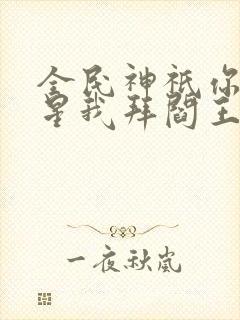 全民神祇你
星我拜阎王
一夜秋岚